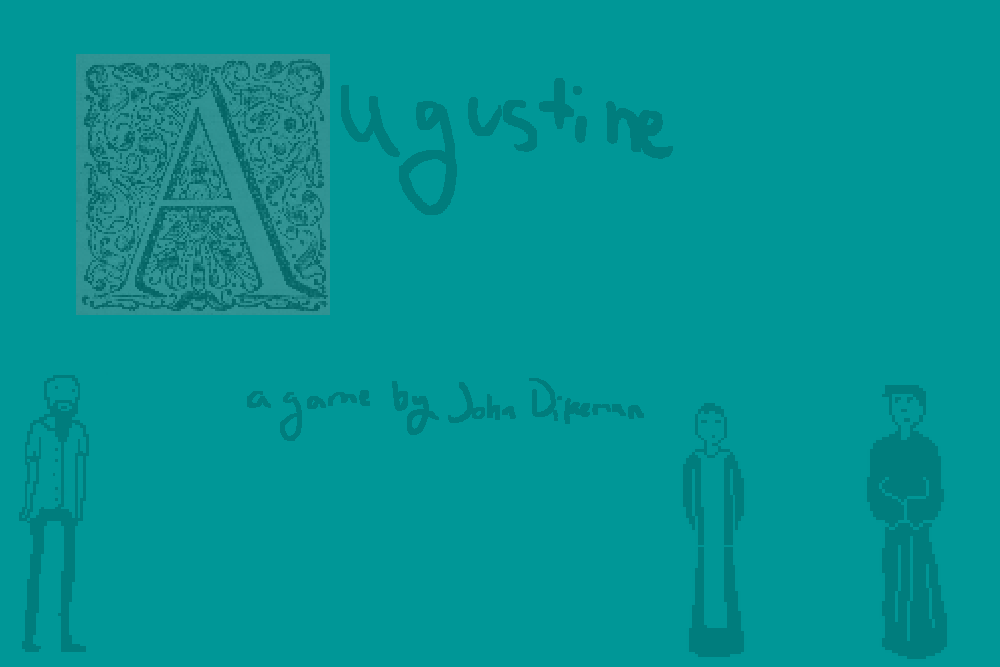 Augustine
a game by John Dikeman